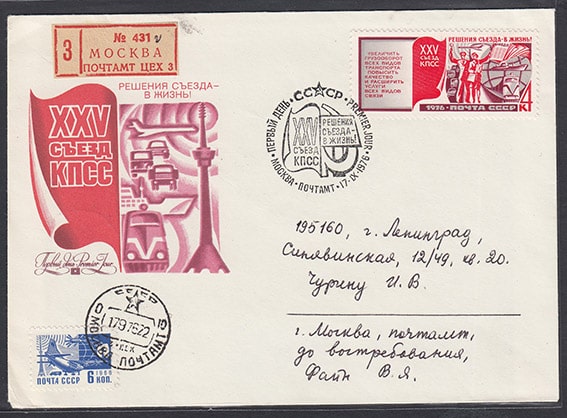 № 431 г
3
МОСКВА
ПОЧТАМТ ЦЕХ 3
РЕШЕНИЯ СЪЕЗДА-
В ЖИЗНЬ!
XXV
СЪЕЗД
КПСС
Первый День Premier Jour
РЕШЕНИЯ СЪЕЗДА-В ЖИЗНЬ!
XXV
СЪЕЗД
КПСС
УВЕЛИЧИТЬ
ГРУЗООБОРОТ
ВСЕХ ВИДОВ
ТРАНСПОРТА
ПОВЫСИТЬ
КАЧЕСТВО
И РАСШИРИТЬ
УСЛУГИ
ВСЕХ ВИДОВ
СВЯЗИ
1976·ПОЧТА СССР
4
К
ПЕРВЫЙ ДЕНЬ·СССР·PREMIER JOUR·
МОСКВА·ПОЧТАМТ·17·IX·1976·
XXV
СЪЕЗД
КПСС
РЕШЕНИЯ
СЪЕЗДА-
В ЖИЗНЬ!
195160, г. Ленинград,
Синявинская, 12/49, кв. 20.
Чурину И. В.
г. Москва, почтамт,
до востребования,
Файн В. Я.
СССР
1797622
МОСКВА ПОЧТАМТ
1966
ПОЧТА СССР 6 КОП.